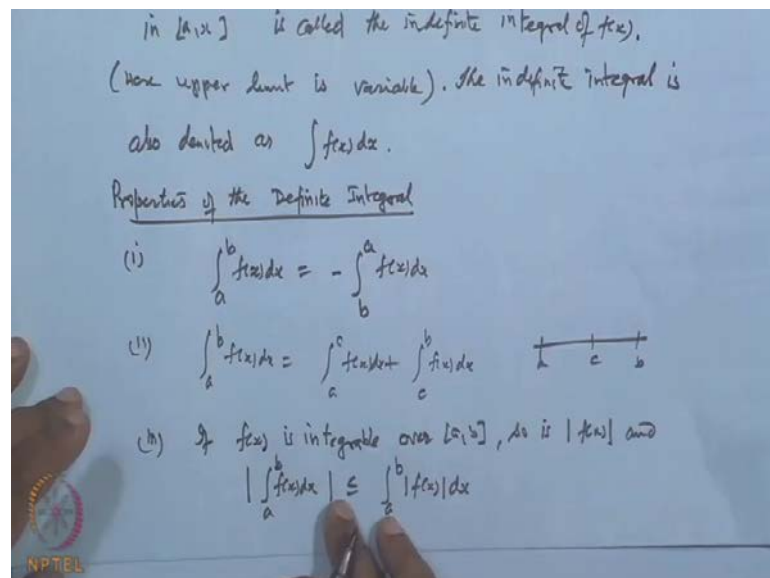 in [a,x] is called the indefinite integral of f(x).
(Here upper limit is variable). The indefinite integral is
also denoted as ∫ f(x) dx.
Properties of the Definite Integral
(i) ∫_a^b f(x) dx = - ∫_b^a f(x) dx
(ii) ∫_a^b f(x) dx = ∫_a^c f(x) dx + ∫_c^b f(x) dx
a c b
(iii) If f(x) is integrable over [a,b], so is |f(x)| and
|∫_a^b f(x) dx| ≤ ∫_a^b |f(x)| dx
NPTEL